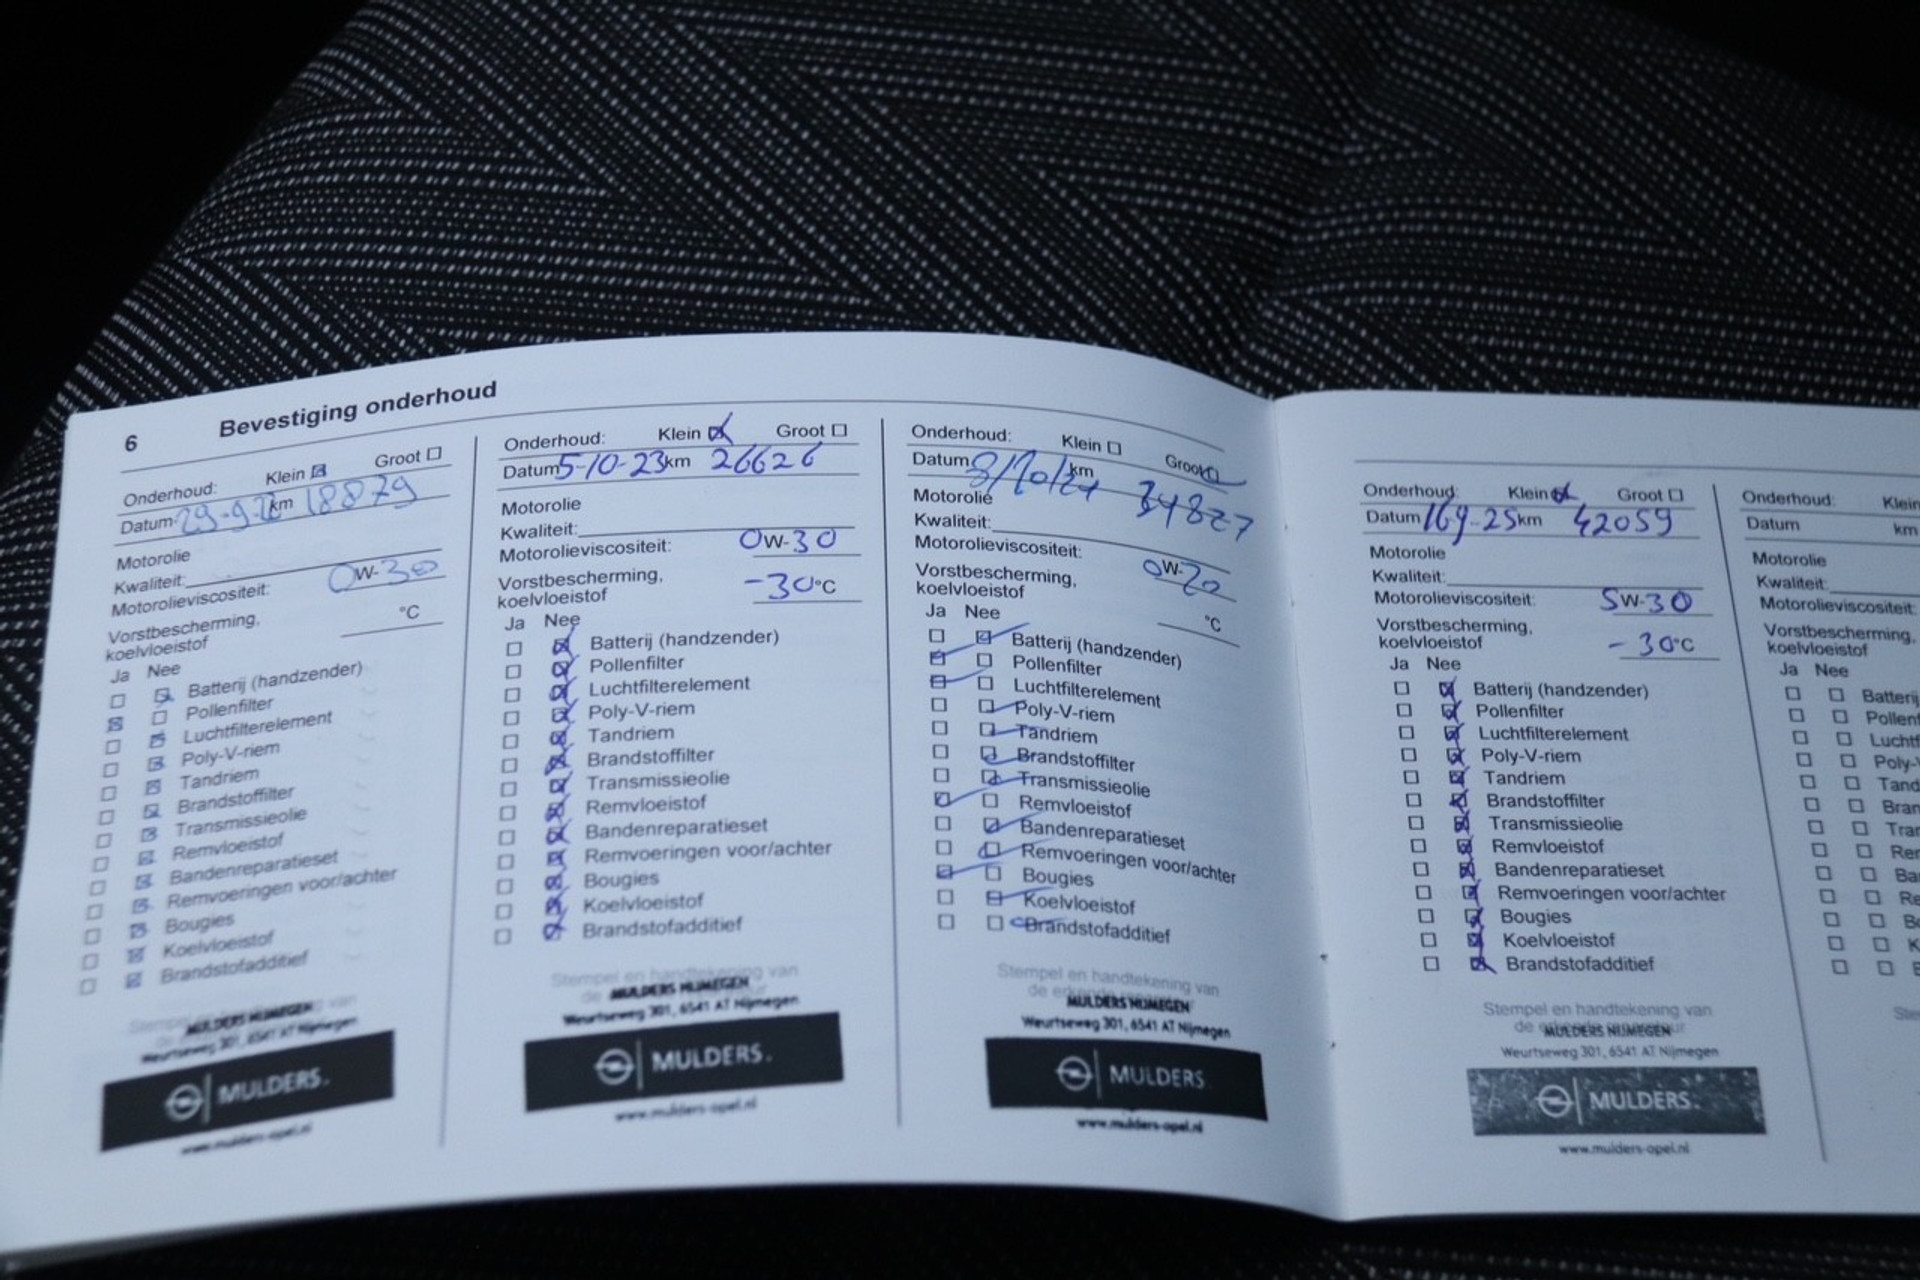 6 Bevestiging onderhoud
Onderhoud: Klein Groot
Datum 29-9-22 km 18879
Motorolie
Kwaliteit:
Motorolieviscositeit: 0W-30
Vorstbescherming,
koelvloeistof °C
Ja Nee
Batterij (handzender)
Pollenfilter
Luchtfilterelement
Poly-V-riem
Tandriem
Brandstoffilter
Transmissieolie
Remvloeistof
Bandenreparatieset
Remvoeringen voor/achter
Bougies
Koelvloeistof
Brandstofadditief
MULDERS NIJMEGEN
Weurtseweg 301, 6541 AT Nijmegen
MULDERS.
www.mulders-opel.nl
Onderhoud: Klein Groot
Datum 5-10-23 km 26626
Motorolie
Kwaliteit:
Motorolieviscositeit: 0W-30
Vorstbescherming,
koelvloeistof -30°C
Ja Nee
Batterij (handzender)
Pollenfilter
Luchtfilterelement
Poly-V-riem
Tandriem
Brandstoffilter
Transmissieolie
Remvloeistof
Bandenreparatieset
Remvoeringen voor/achter
Bougies
Koelvloeistof
Brandstofadditief
Stempel en handtekening van
MULDERS NIJMEGEN
Weurtseweg 301, 6541 AT Nijmegen
MULDERS.
www.mulders-opel.nl
Onderhoud: Klein Groot
Datum 8/10/24 km 34827
Motorolie
Kwaliteit:
Motorolieviscositeit: 0W-20
Vorstbescherming,
koelvloeistof °C
Ja Nee
Batterij (handzender)
Pollenfilter
Luchtfilterelement
Poly-V-riem
Tandriem
Brandstoffilter
Transmissieolie
Remvloeistof
Bandenreparatieset
Remvoeringen voor/achter
Bougies
Koelvloeistof
Brandstofadditief
Stempel en handtekening van
MULDERS NIJMEGEN
Weurtseweg 301, 6541 AT Nijmegen
MULDERS
www.mulders-opel.nl
Onderhoud: Klein Groot
Datum 16-9-25 km 42059
Motorolie
Kwaliteit:
Motorolieviscositeit: 5W-30
Vorstbescherming,
koelvloeistof -30°C
Ja Nee
Batterij (handzender)
Pollenfilter
Luchtfilterelement
Poly-V-riem
Tandriem
Brandstoffilter
Transmissieolie
Remvloeistof
Bandenreparatieset
Remvoeringen voor/achter
Bougies
Koelvloeistof
Brandstofadditief
Stempel en handtekening van
MULDERS NIJMEGEN
Weurtseweg 301, 6541 AT Nijmegen
MULDERS.
www.mulders-opel.nl
Onderhoud: Klein
Datum km
Motorolie
Kwaliteit:
Motorolieviscositeit:
Vorstbescherming,
koelvloeistof
Ja Nee
Batterij
Pollen
Luchtf
Poly-V
Tand
Bran
Tran
Rem
Ban
Re
Bo
K
B
Ste